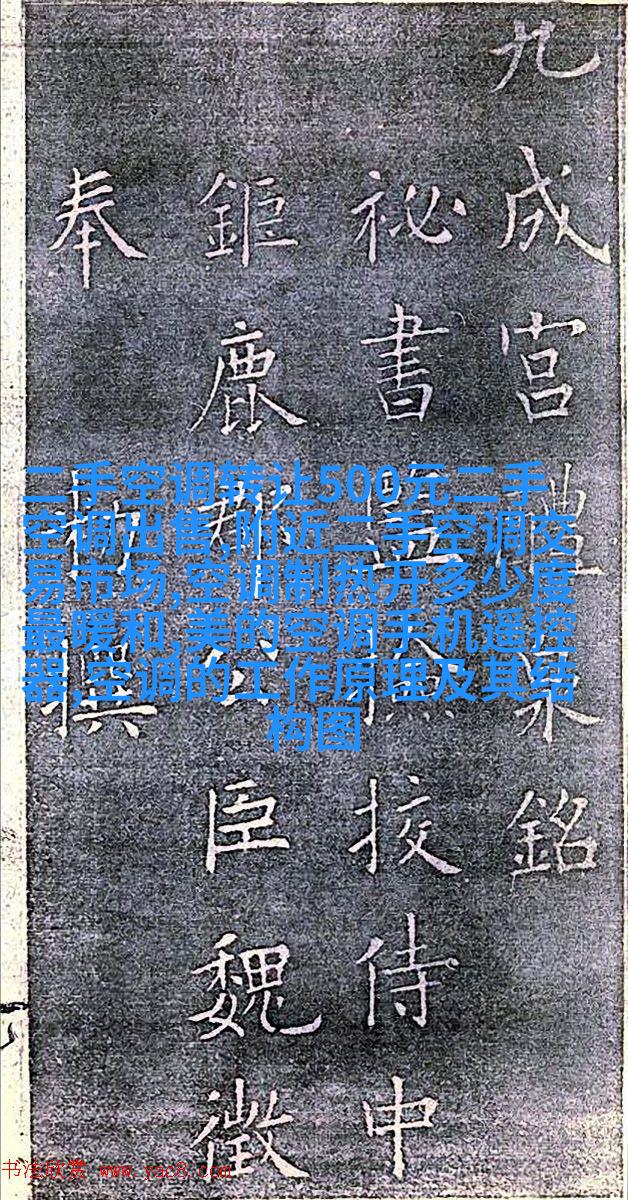 九成宮醴泉銘
祕書監檢挍侍中
鉅鹿郡公臣魏徵
奉勑撰
二手空调转让500元二手
空调出售,附近二手空调交
易市场,空调制热开多少度
最暖和,美的空调手机遥控
器,空调的工作原理及其结
构图
书法欣赏 www.yac8.com